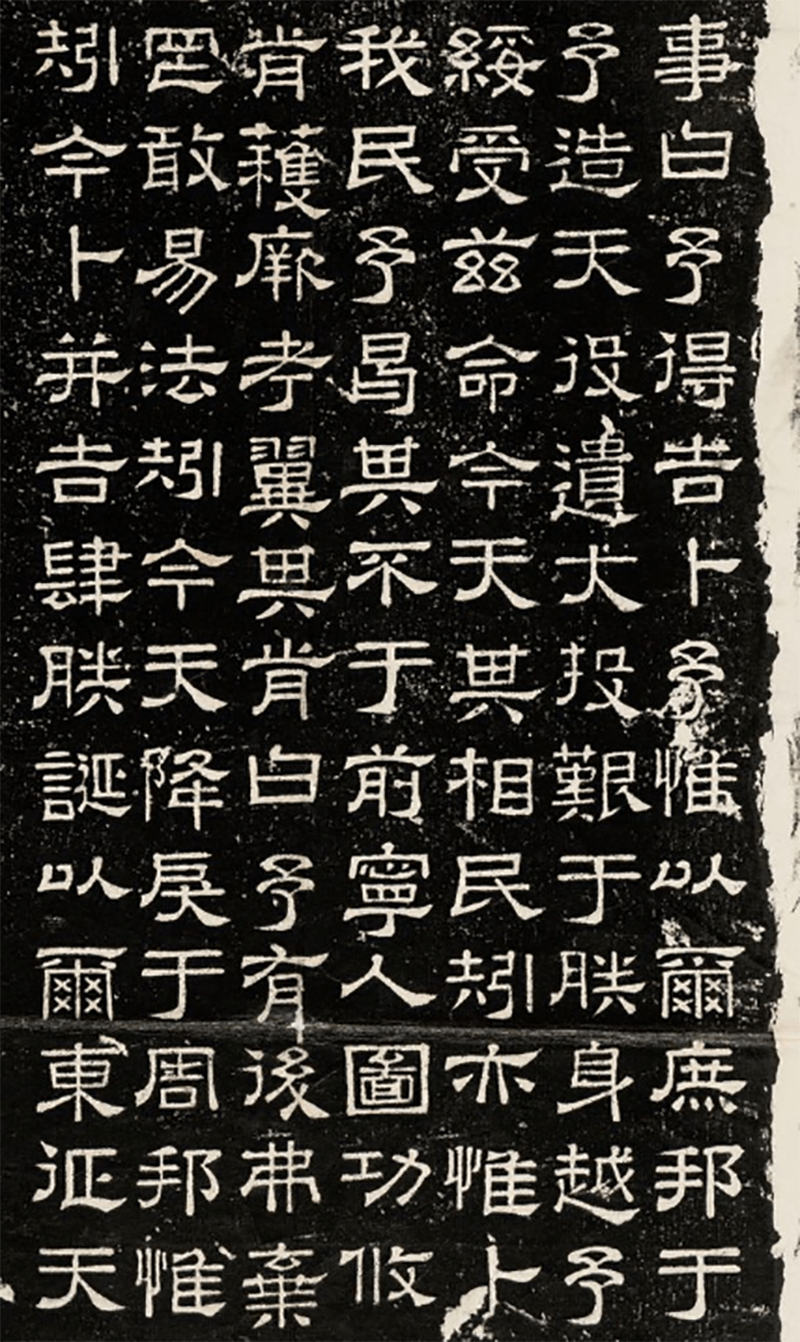 事曰予得吉卜予惟以爾庶邦于
予造天役遺大投艱于朕身越予
綏受兹命今天其相民矧亦惟卜
我民予曷其不于前寧人圖功攸
肯穫厥考翼其肯曰予有後弗棄
罔敢易法矧今天降戾于周邦惟
矧今卜并吉肆朕誕以爾東征天